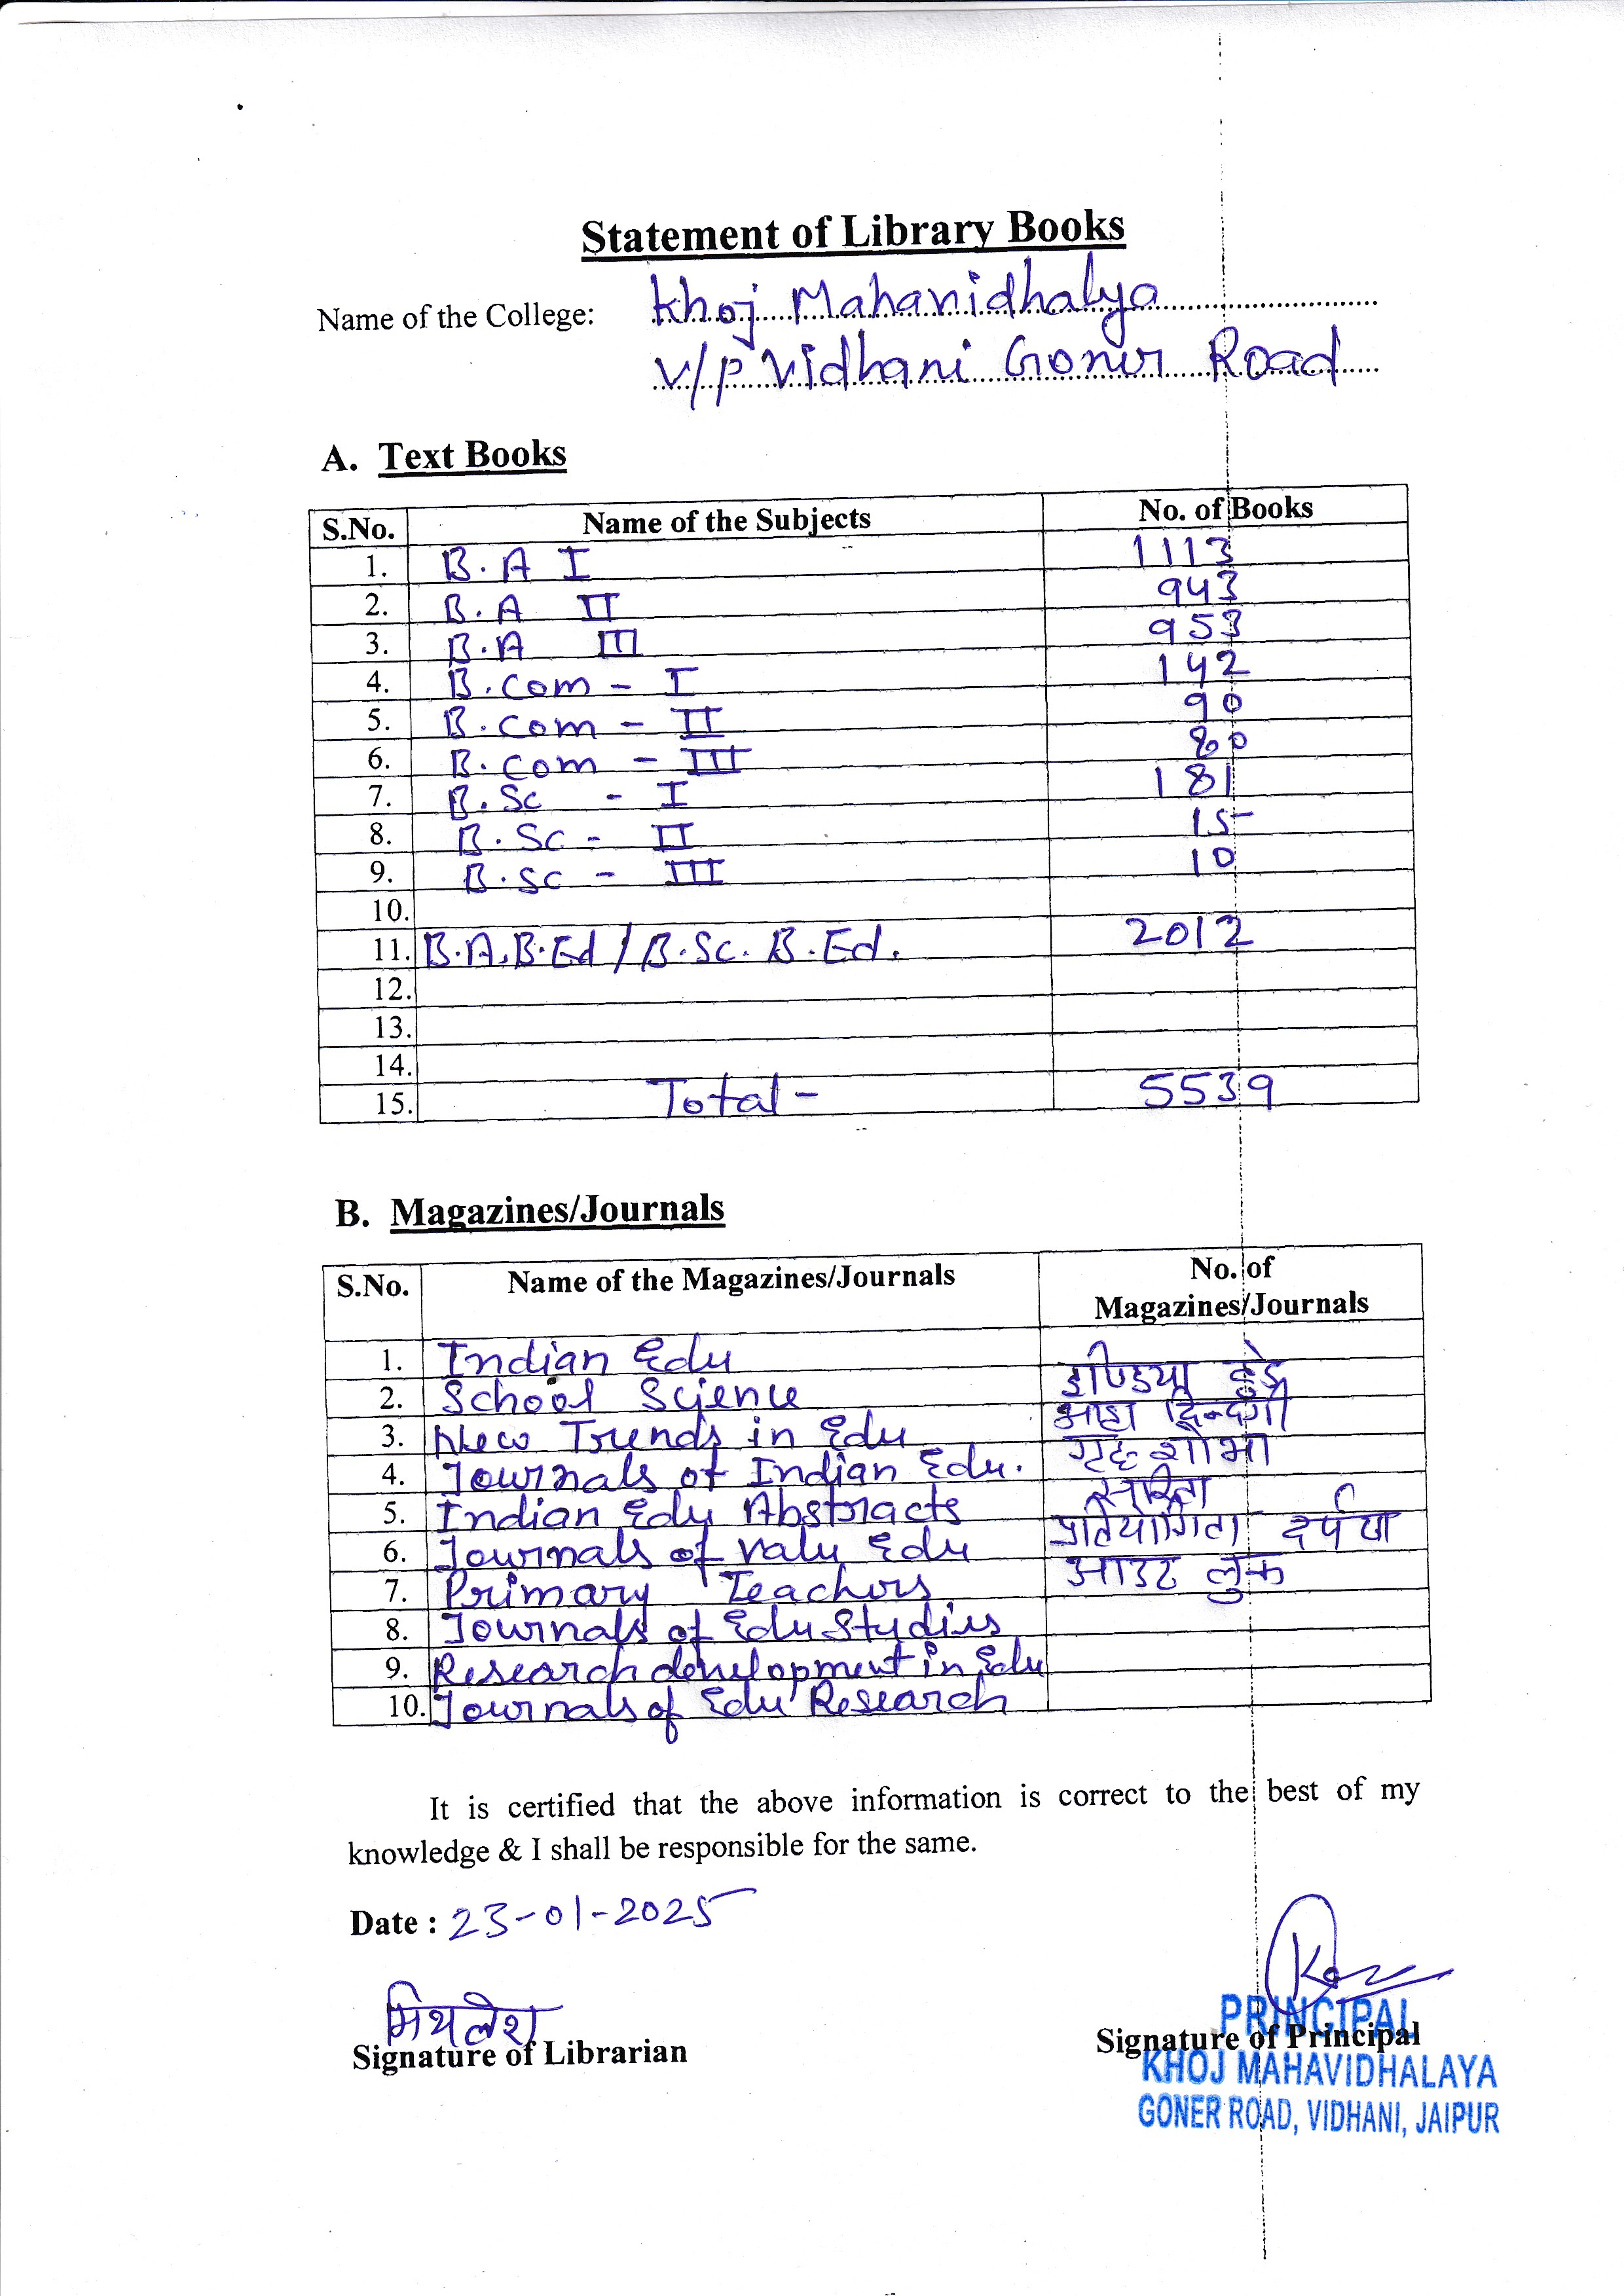 Statement of Library Books
Name of the College: Khoj Mahavidhalya
V/P Vidhani Goner Road
A. Text Books
S.No. Name of the Subjects No. of Books
1. B.A I 1113
2. B.A II 943
3. B.A III 953
4. B.Com - I 142
5. B.Com - II 90
6. B.Com - III 80
7. B.Sc - I 181
8. B.Sc - II 15
9. B.Sc - III 10
10.
11. B.A.B.Ed / B.Sc. B.Ed. 2012
12.
13.
14.
15. Total - 5539
B. Magazines/Journals
S.No. Name of the Magazines/Journals No. of Magazines/Journals
1. Indian Edu
2. School Science इण्डिया टुडे
3. New Trends in Edu
4. Journals of Indian Edu. गृह शोभा
5. Indian Edu Abstracts सरिता
6. Journals of Valu Edu प्रतियोगिता दर्पण
7. Primary Teachers आउट लुक
8. Journals of Edu Studies
9. Research development in Edu
10. Journals of Edu Research
It is certified that the above information is correct to the best of my
knowledge & I shall be responsible for the same.
Date : 23-01-2025
मिथलेश
Signature of Librarian
PRINCIPAL
Signature of Principal
KHOJ MAHAVIDHALAYA
GONER ROAD, VIDHANI, JAIPUR